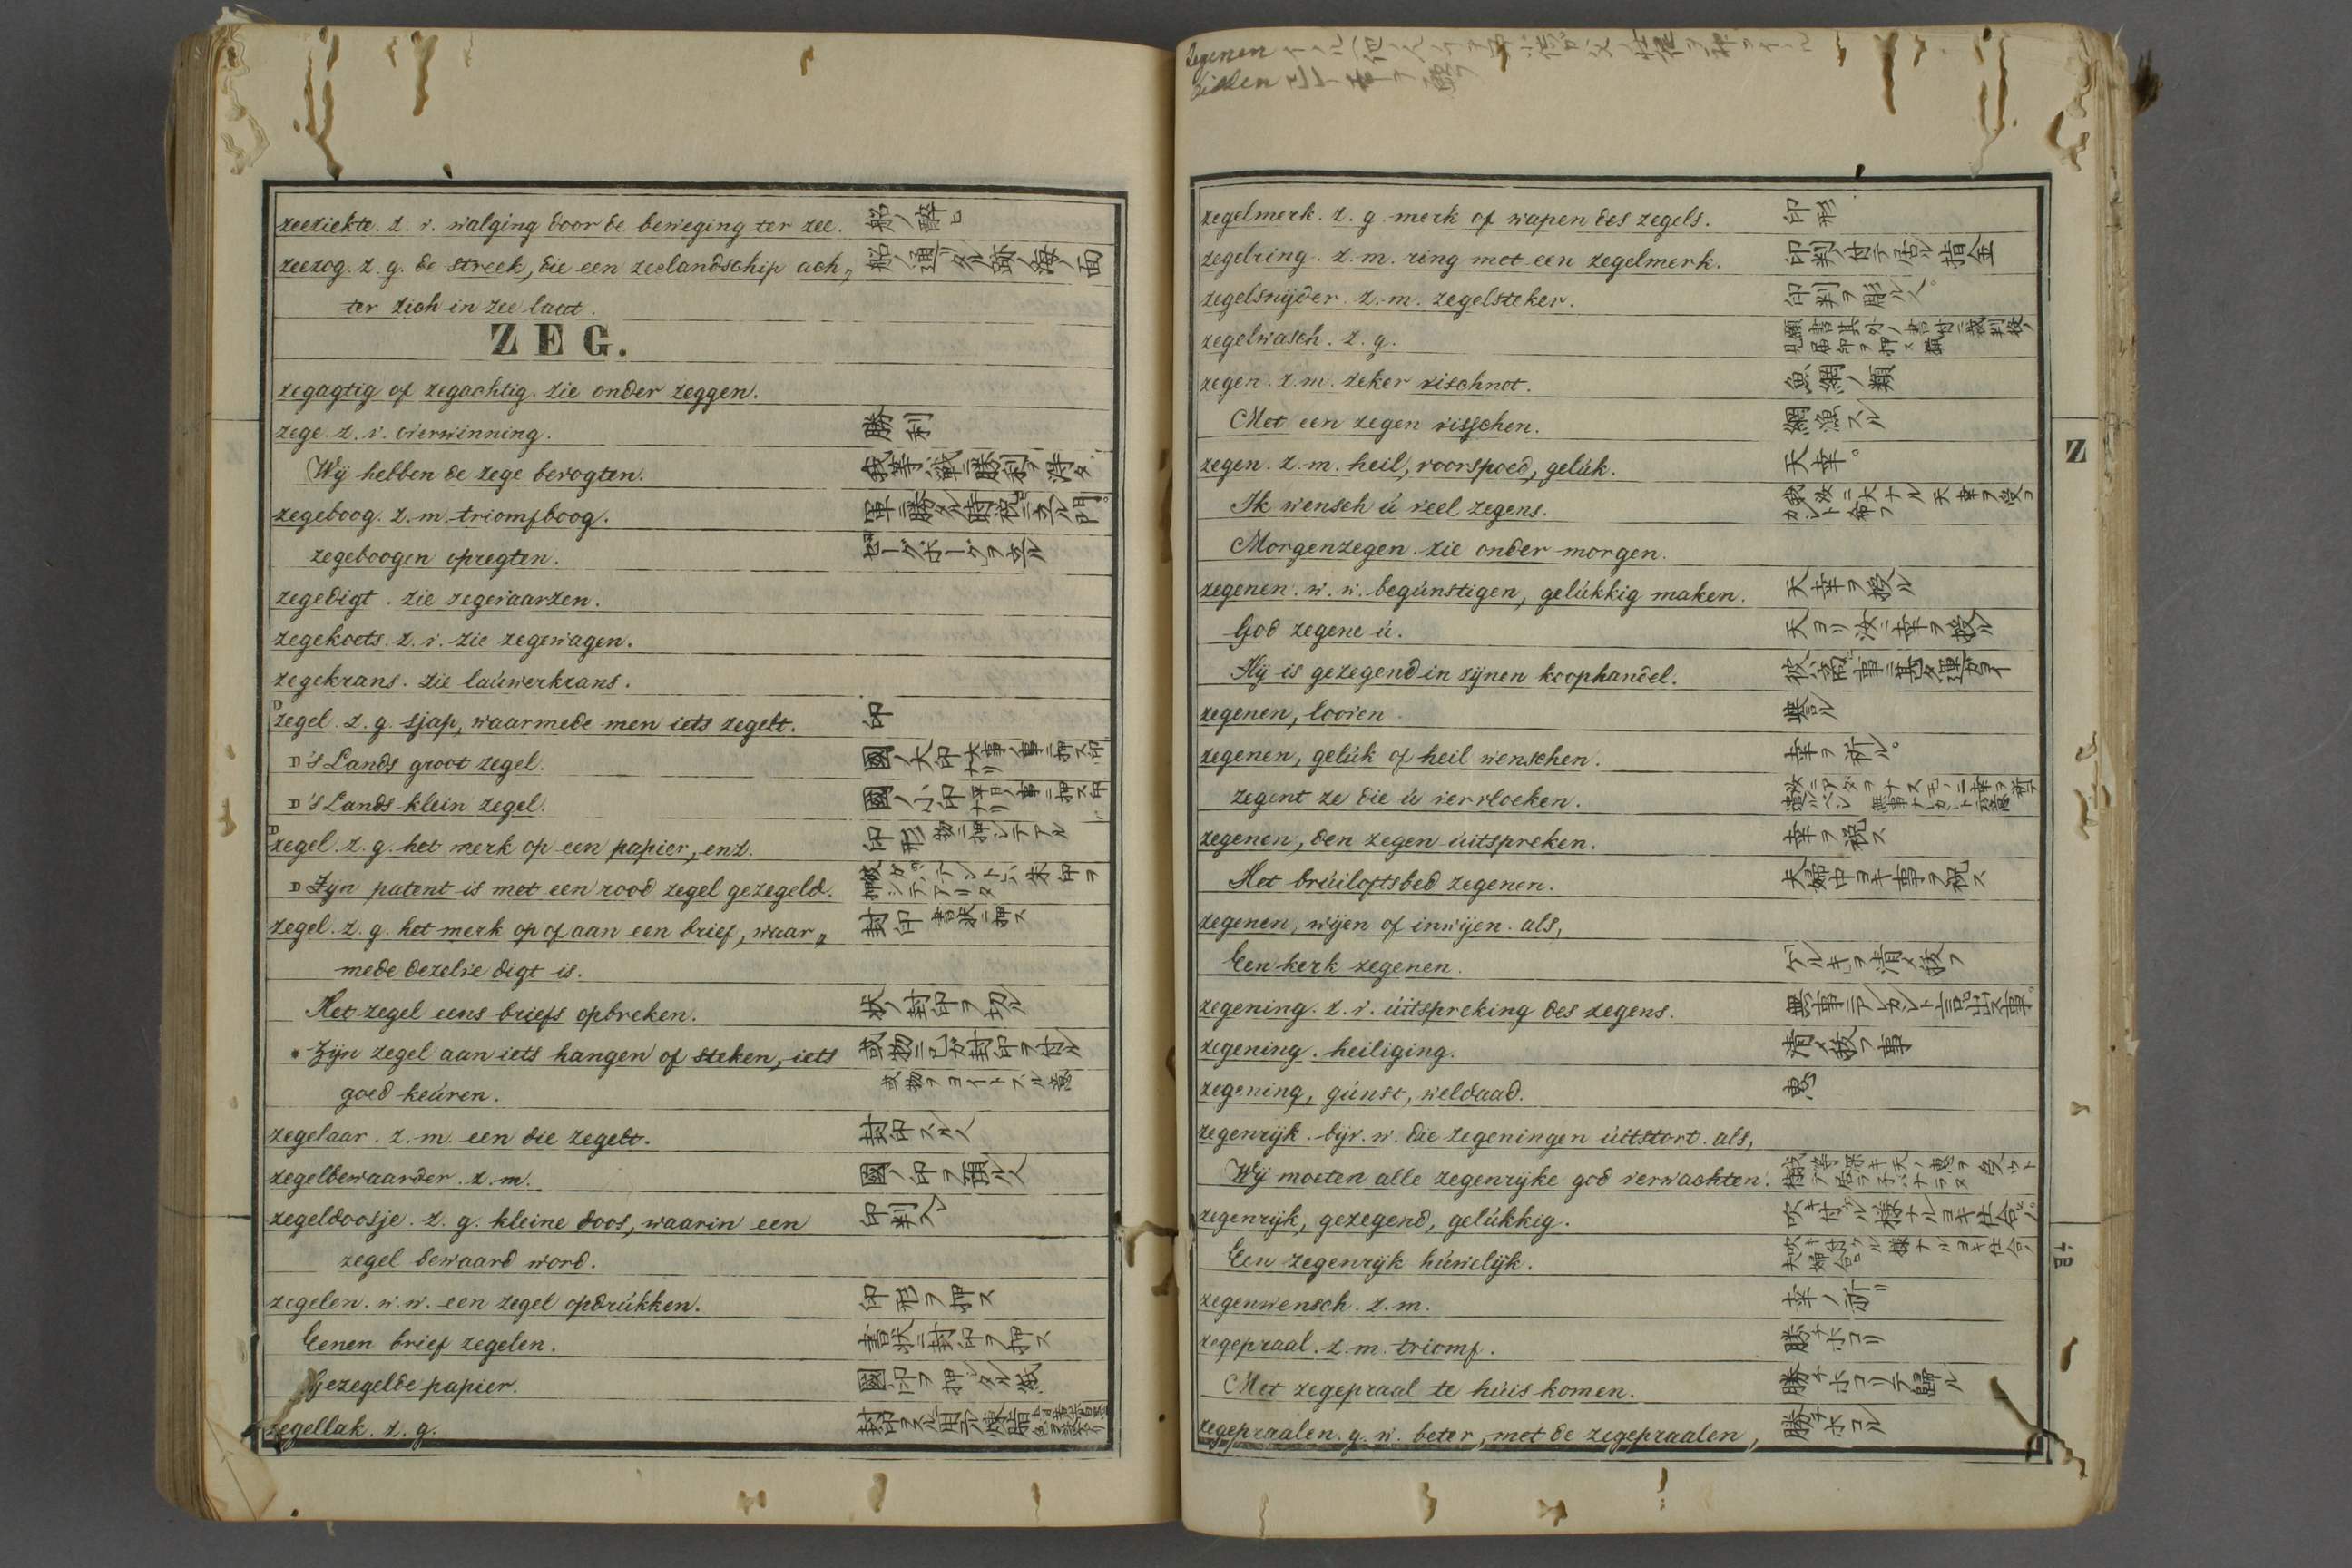 zeeziekte. z. v. walging door de beweging ter zee. 船ノ酔ヒ
zeezog. z. g. de streek, die een zeelandschip ach„ 船ノ通リタル跡ノ海ノ面
ter zich in zee laat.
ZEG.
zegagtig of zegachtig. zie onder zeggen.
zege. z. v. overwinning. 勝利
Wij hebben de zege bevogten. 我等戦ニ勝利ヲ得タ
zegeboog. z. m. triomfboog. 軍ニ勝タル時祝ニ立ル門。
zegeboogen opregten. ゼーゲボーグヲ立ル
zegedigt. zie zegevaarzen.
zegekoets. z. v. zie zegewagen.
zegekrans. zie laúwerkrans.
zegel. z. g. sjap, waarmede men iets zegelt. 印
's Lands groot zegel. 國ノ大印 大事ノ事ニ押ス印ナリ
's Lands klein zegel. 國ノ小印 平日ノ事ニ押ス印ナリ
zegel. z. g. het merk op een papier, enz. 印形 物ニ押シテアル
Zijn patent is met een rood zegel gezegeld.
zegel. z. g. het merk op of aan een brief, waar„ 封印 書状ニ押ス
mede dezelve digt is.
Het zegel eens briefs opbreken. 状ノ封印ヲ切ル
Zijn zegel aan iets hangen of steken, iets 或物ニ己ガ封印ヲ付ル
goed keúren. 或物ヲヨイトスル意
zegelaar. z. m. een die zegelt. 封印スル人
zegelbewaarder. z. m. 國ノ印ヲ預ル人
zegeldoosje. z. g. kleine doos, waarin een 印判入
zegel bewaard word.
zegelen. w. w. een zegel opdrúkken. 印形ヲ押ス
Eenen brief zegelen. 書状ニ封印ヲ押ス
Gezegelde papier. 國印ヲ押シタル紙
zegellak. z. g. 封印スル用
Zegenen
zegelmerk. z. g. merk of wapen des zegels. 印形
zegelring. z. m. ring met een zegelmerk. 印判ノ付テ居ル指金
zegelsnijder. z. m. zegelsteker. 印判ヲ彫ル人。
zegelwasch. z. g.
zegen. z. m. zeker vischnet. 魚網ノ類
Met een zegen visschen. 網漁スル
zegen. z. m. heil, voorspoed, gelúk. 天幸。
Ik wensch ú veel zegens. 我汝ニ大ナル天幸ヲ受ヨカシト希フ
Morgenzegen. zie onder morgen.
zegenen. w. w. begúnstigen, gelúkkig maken. 天幸ヲ授ル
God zegene ú. 天ヨリ汝ニ幸ヲ授ル
Hij is gezegend in zijnen koophandel. 彼ハ商事ニ甚タ運カヨイ
zegenen, looven 譽ル
zegenen, gelúk of heil wenschen. 幸ヲ祈ル。
Zegent ze die ú vervloeken.
zegenen, den zegen úitspreken. 幸ヲ祝ス
Het brúiloftsbed zegenen. 夫婦中ヨキ事ヲ祝ス
zegenen, wijen of inwijen. als,
Een kerk zegenen. ゲルキヲ清メ祓フ
zegening. z. v. úitspreking des zegens. 無事ニアレカシト言出ス事。
zegening. heiliging. 清メ祓フ事
zegening, gúnst, weldaad. 恵ミ
zegenrijk. bijv. w. die zegeningen úitstort. als,
Wij moeten alle zegenrijke god verwachten.
zegenrijk, gezegend, gelúkkig. 吹キ付ル様ナルヨキ仕合ノ。
Een zegenrijk húwelijk. 吹キ付クル様ナルヨキ仕合ノ夫婦合
zegenwensch. z. m. 幸ノ祈リ
zegepraal. z. m. triomf. 勝ホコリ
Met zegepraal te húis komen. 勝チホコリテ歸ル
zegepraalen. g. w. beter, met de zegepraalen, 勝チホコル
Z